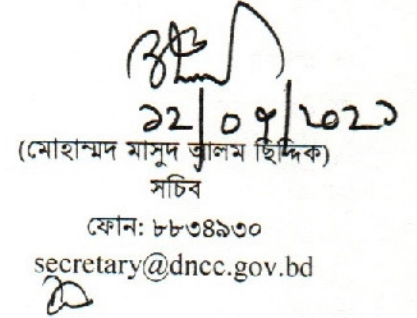 ১২/০৭/২০২১
(মোহাম্মদ মাসুদ আলম ছিদ্দিক)
সচিব
ফোন: ৮৮৩৪৯৩০
secretary@dncc.gov.bd